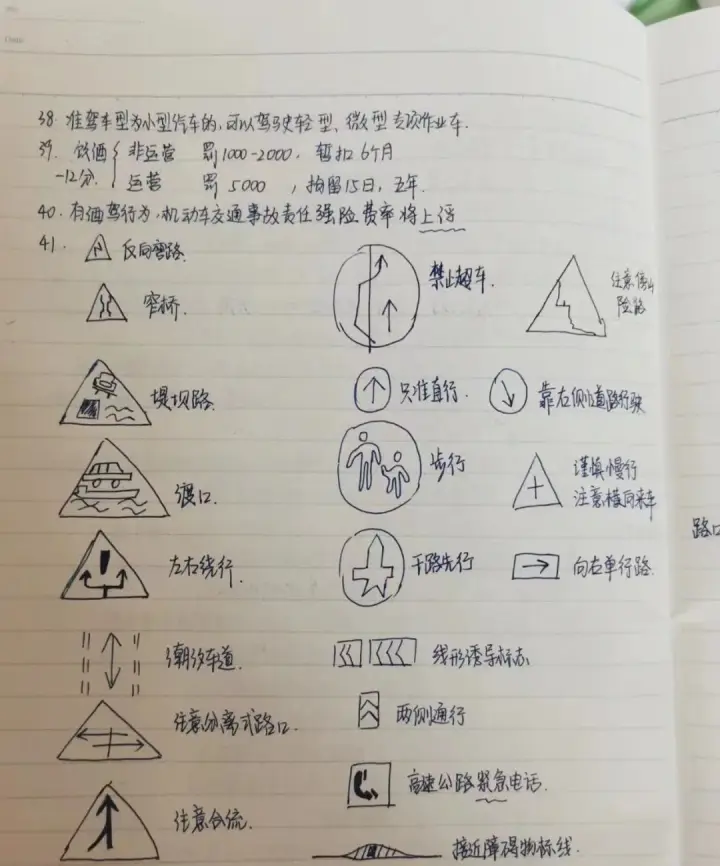 38. 准驾车型为小型汽车的,可以驾驶轻型、微型专项作业车.
39. 饮酒 非运营 罚1000-2000, 暂扣6个月
-12分. 运营 罚5000 ,拘留15日,五年.
40. 有酒驾行为,机动车交通事故责任强险费率将上浮
41. 反向弯路. 禁止超车. 注意傍山险路
窄桥.
堤坝路. 只准直行. 靠右侧道路行驶
渡口. 步行 谨慎慢行
注意横向来车
左右绕行. 干路先行 向右单行路.
路口
潮汐车道. 线形诱导标志
注意分离式路口. 两侧通行
高速公路紧急电话.
注意合流. 接近障碍物标线.